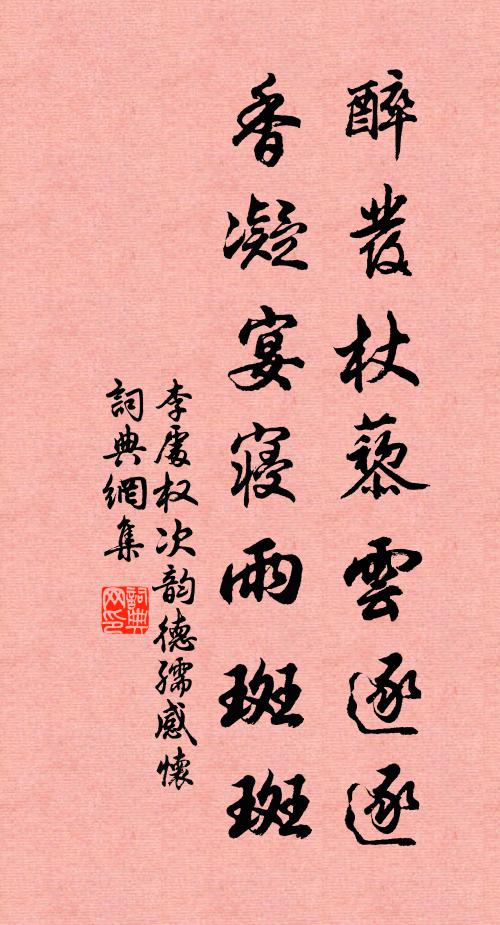 醉發杖藜雲逐逐
香凝宴寢雨斑斑
李處权次韵德孺感懷
詞典網集
詞典网印